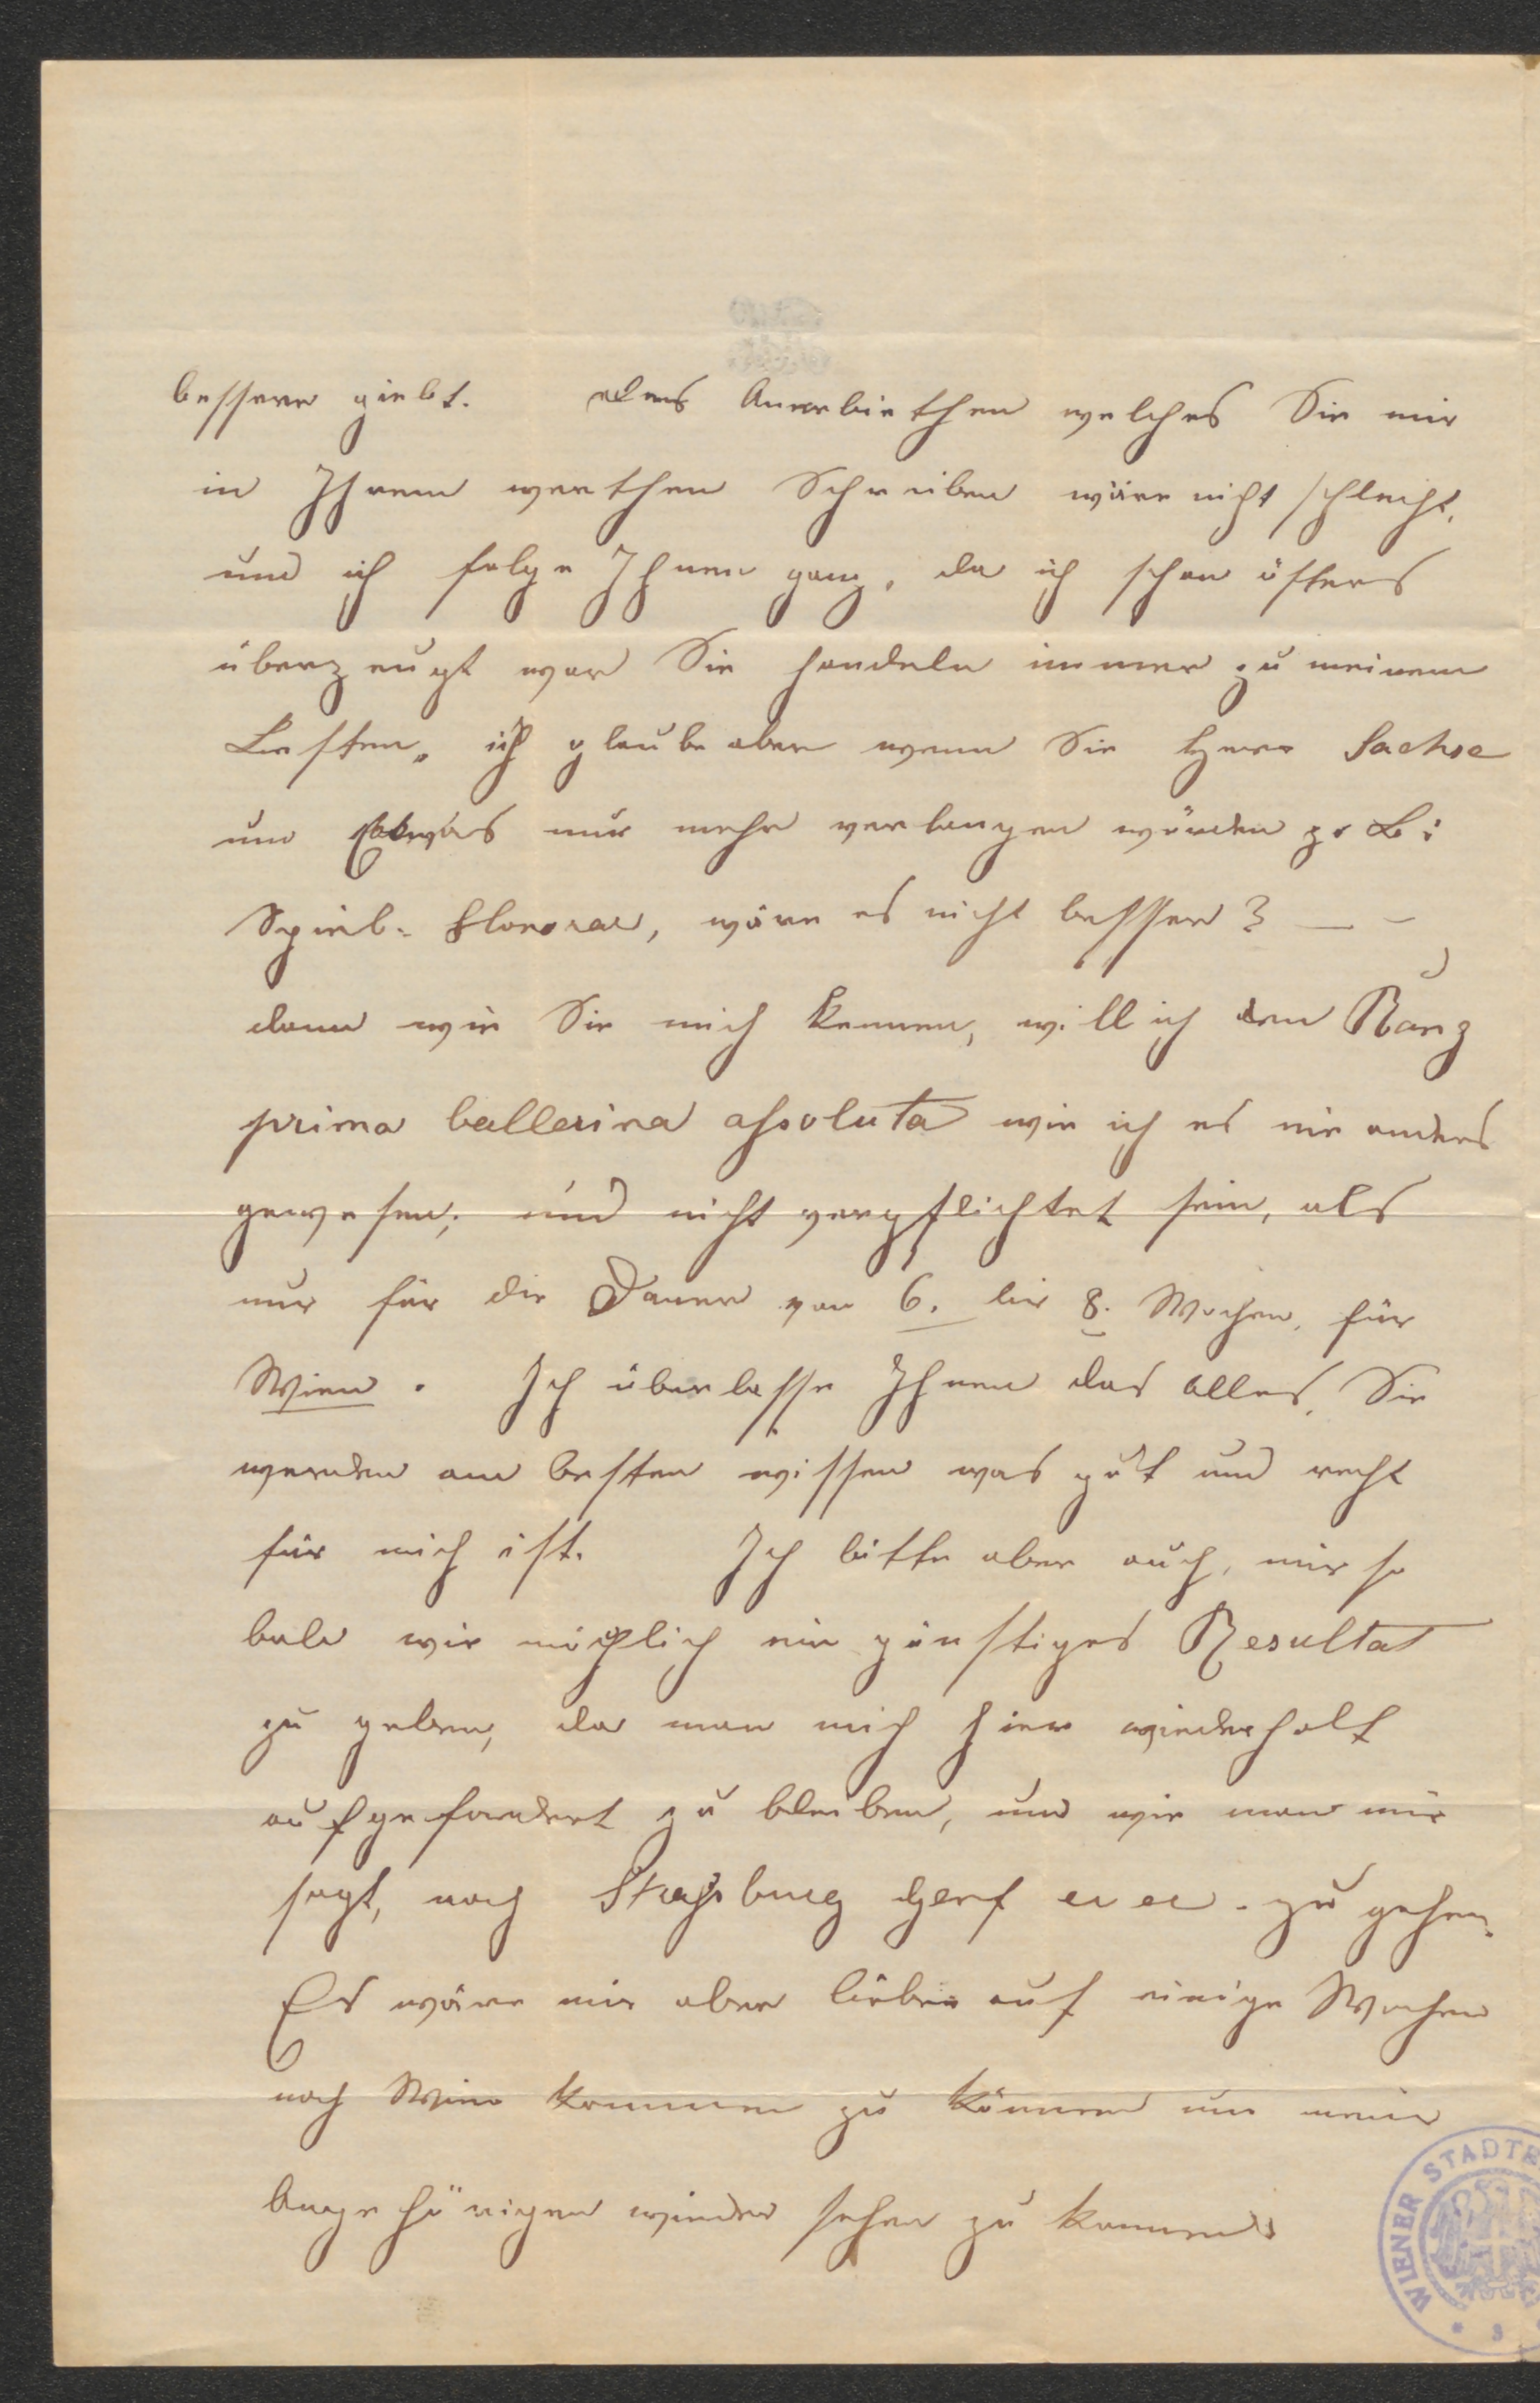 bessere giebt. das Anerbiethen welches Sie mir
in Ihrem werthen Schreiben wäre nicht schlecht,
und ich folge Ihnen ganz, da ich schon öfters
überzeugt war Sie handeln immer zu meinem
Besten, ich glaube aber wenn Sie Herr Sachse
um Etwas nur mehr verlangen würden z. B:
Spiel-Honorar, wäre es nicht besser? — –
dann wie Sie mich kennen, will ich den Rang
prima ballerina assoluta wie ich es nie anders
gewesen; und nicht verpflichtet sein, als
nur für die Dauer von 6. bis 8. Wochen, für
Wien. Ich überlasse Ihnen das alles, Sie
werden am besten wissen was gut und recht
für mich ist. Ich bitte aber auch, mir so
bald wie möglich ein günstiges Resultat
zu geben, da man mich hier wiederholt
aufgefordert zu bleiben, und wie man mir
sagt, nach Straßburg Genf zu gehen.
Es wäre mir aber lieber auf einige Wochen
nach Wien kommen zu können um meine
Angehörigen wieder sehen zu können
WIENER STADT